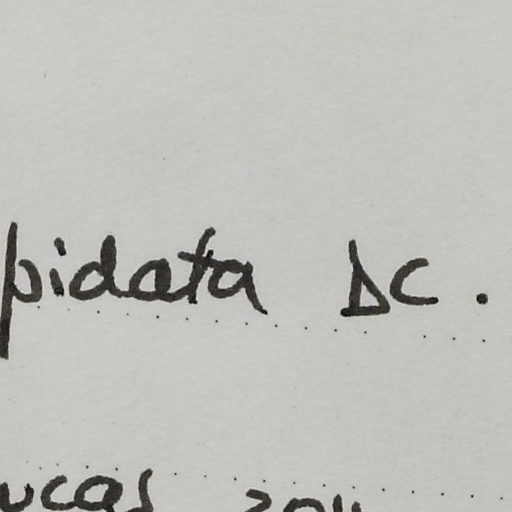 pidata DC.
ucas 2011